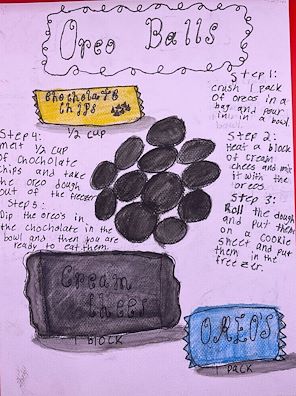 Oreo Balls
Chocholate
Chips
1/2 cup
Step 1:
Crush 1 pack
of oreos in a
bag and pour
in a bowl.
Step 2:
Heat a block
of cream
chees and mix
it with the
oreos.
Step 3:
Roll the dough
and put them
on a cookie
sheet and put
them in the
freezer.
Step 4:
melt 1/2 cup
of chocholate
chips and take
the oreo dough
out of the freezer
Step 5:
Dip the oreo's in
the chocholate in the
bowl and then you are
ready to eat them.
Cream
chees
1 block
OREO'S
1 pack